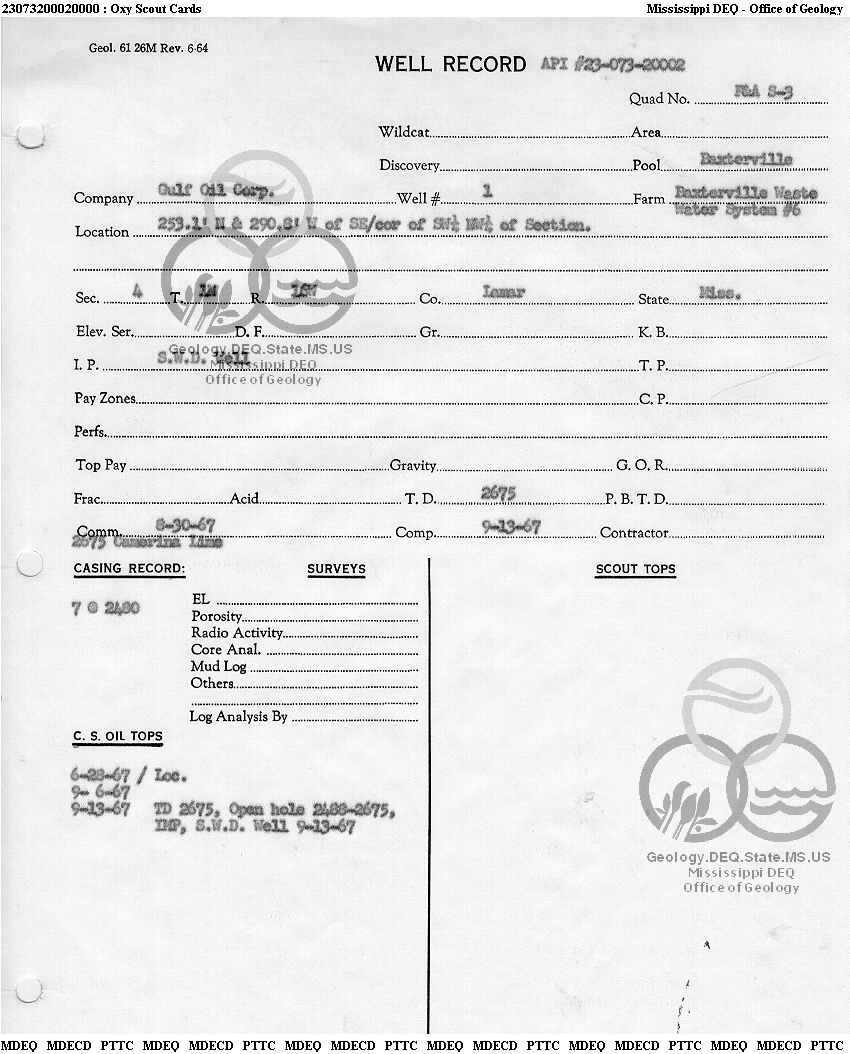 23073200020000 : Oxy Scout Cards Mississippi DEQ - Office of Geology
Geol. 61 26M Rev. 6-64
WELL RECORD API #23-073-20002
Quad No. F&A S-3
Wildcat Area
Discovery Pool Baxterville
Company Gulf Oil Corp. Well # 1 Farm Baxterville Waste
Water System #6
Location 253.1' N & 290.8' W of SE/cor of SW¼ NW¼ of Section.
Sec. 4 T. 1N R. 16W Co. Lamar State Miss.
Elev. Ser. D. F. Gr. K. B.
Geology.DEQ.State.MS.US
I. P. S.W.D. Well T. P.
Mississippi DEQ
Office of Geology
Pay Zones C. P.
Perfs.
Top Pay Gravity G. O. R.
Frac. Acid T. D. 2675 P. B. T. D.
Comm. 8-30-67 Comp. 9-13-67 Contractor
2675 Camerina Lime
CASING RECORD: SURVEYS SCOUT TOPS
7 @ 2480
EL
Porosity
Radio Activity
Core Anal.
Mud Log
Others
Log Analysis By
C. S. OIL TOPS
6-28-67 / Loc.
9- 6-67
9-13-67 TD 2675, Open hole 2488-2675,
IMP, S.W.D. Well 9-13-67
Geology.DEQ.State.MS.US
Mississippi DEQ
Office of Geology
MDEQ MDECD PTTC MDEQ MDECD PTTC MDEQ MDECD PTTC MDEQ MDECD PTTC MDEQ MDECD PTTC MDEQ MDECD PTTC